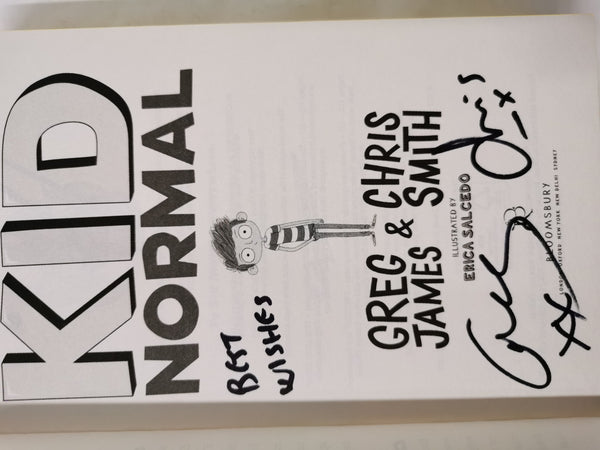 KID
NORMAL
BEST
WISHES
GREG & CHRIS
JAMES SMITH
ILLUSTRATED BY
ERICA SALCEDO
Chris x
BLOOMSBURY
LONDON OXFORD NEW YORK NEW DELHI SYDNEY